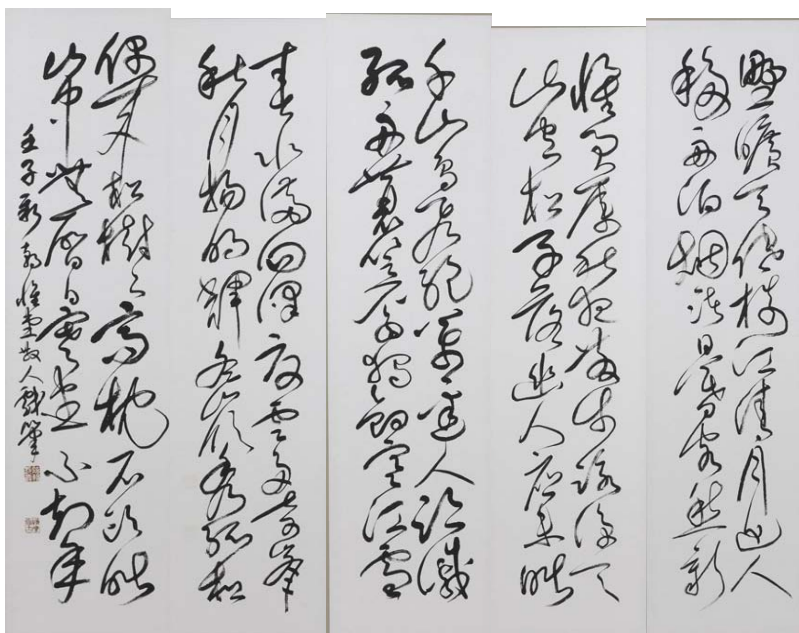 野曠天低樹江清月近人
移舟泊煙渚日暮客愁新
懷君屬秋夜散步詠涼天
山空松子落幽人應未眠
千山鳥飛絕萬逕人蹤滅
孤舟蓑笠翁獨釣寒江雪
春水滿四澤夏雲多奇峰
秋月揚明輝冬嶺秀孤松
偶來松樹下高枕石頭眠
山中無曆日寒盡不知年
壬子新 惟堂散人戲筆